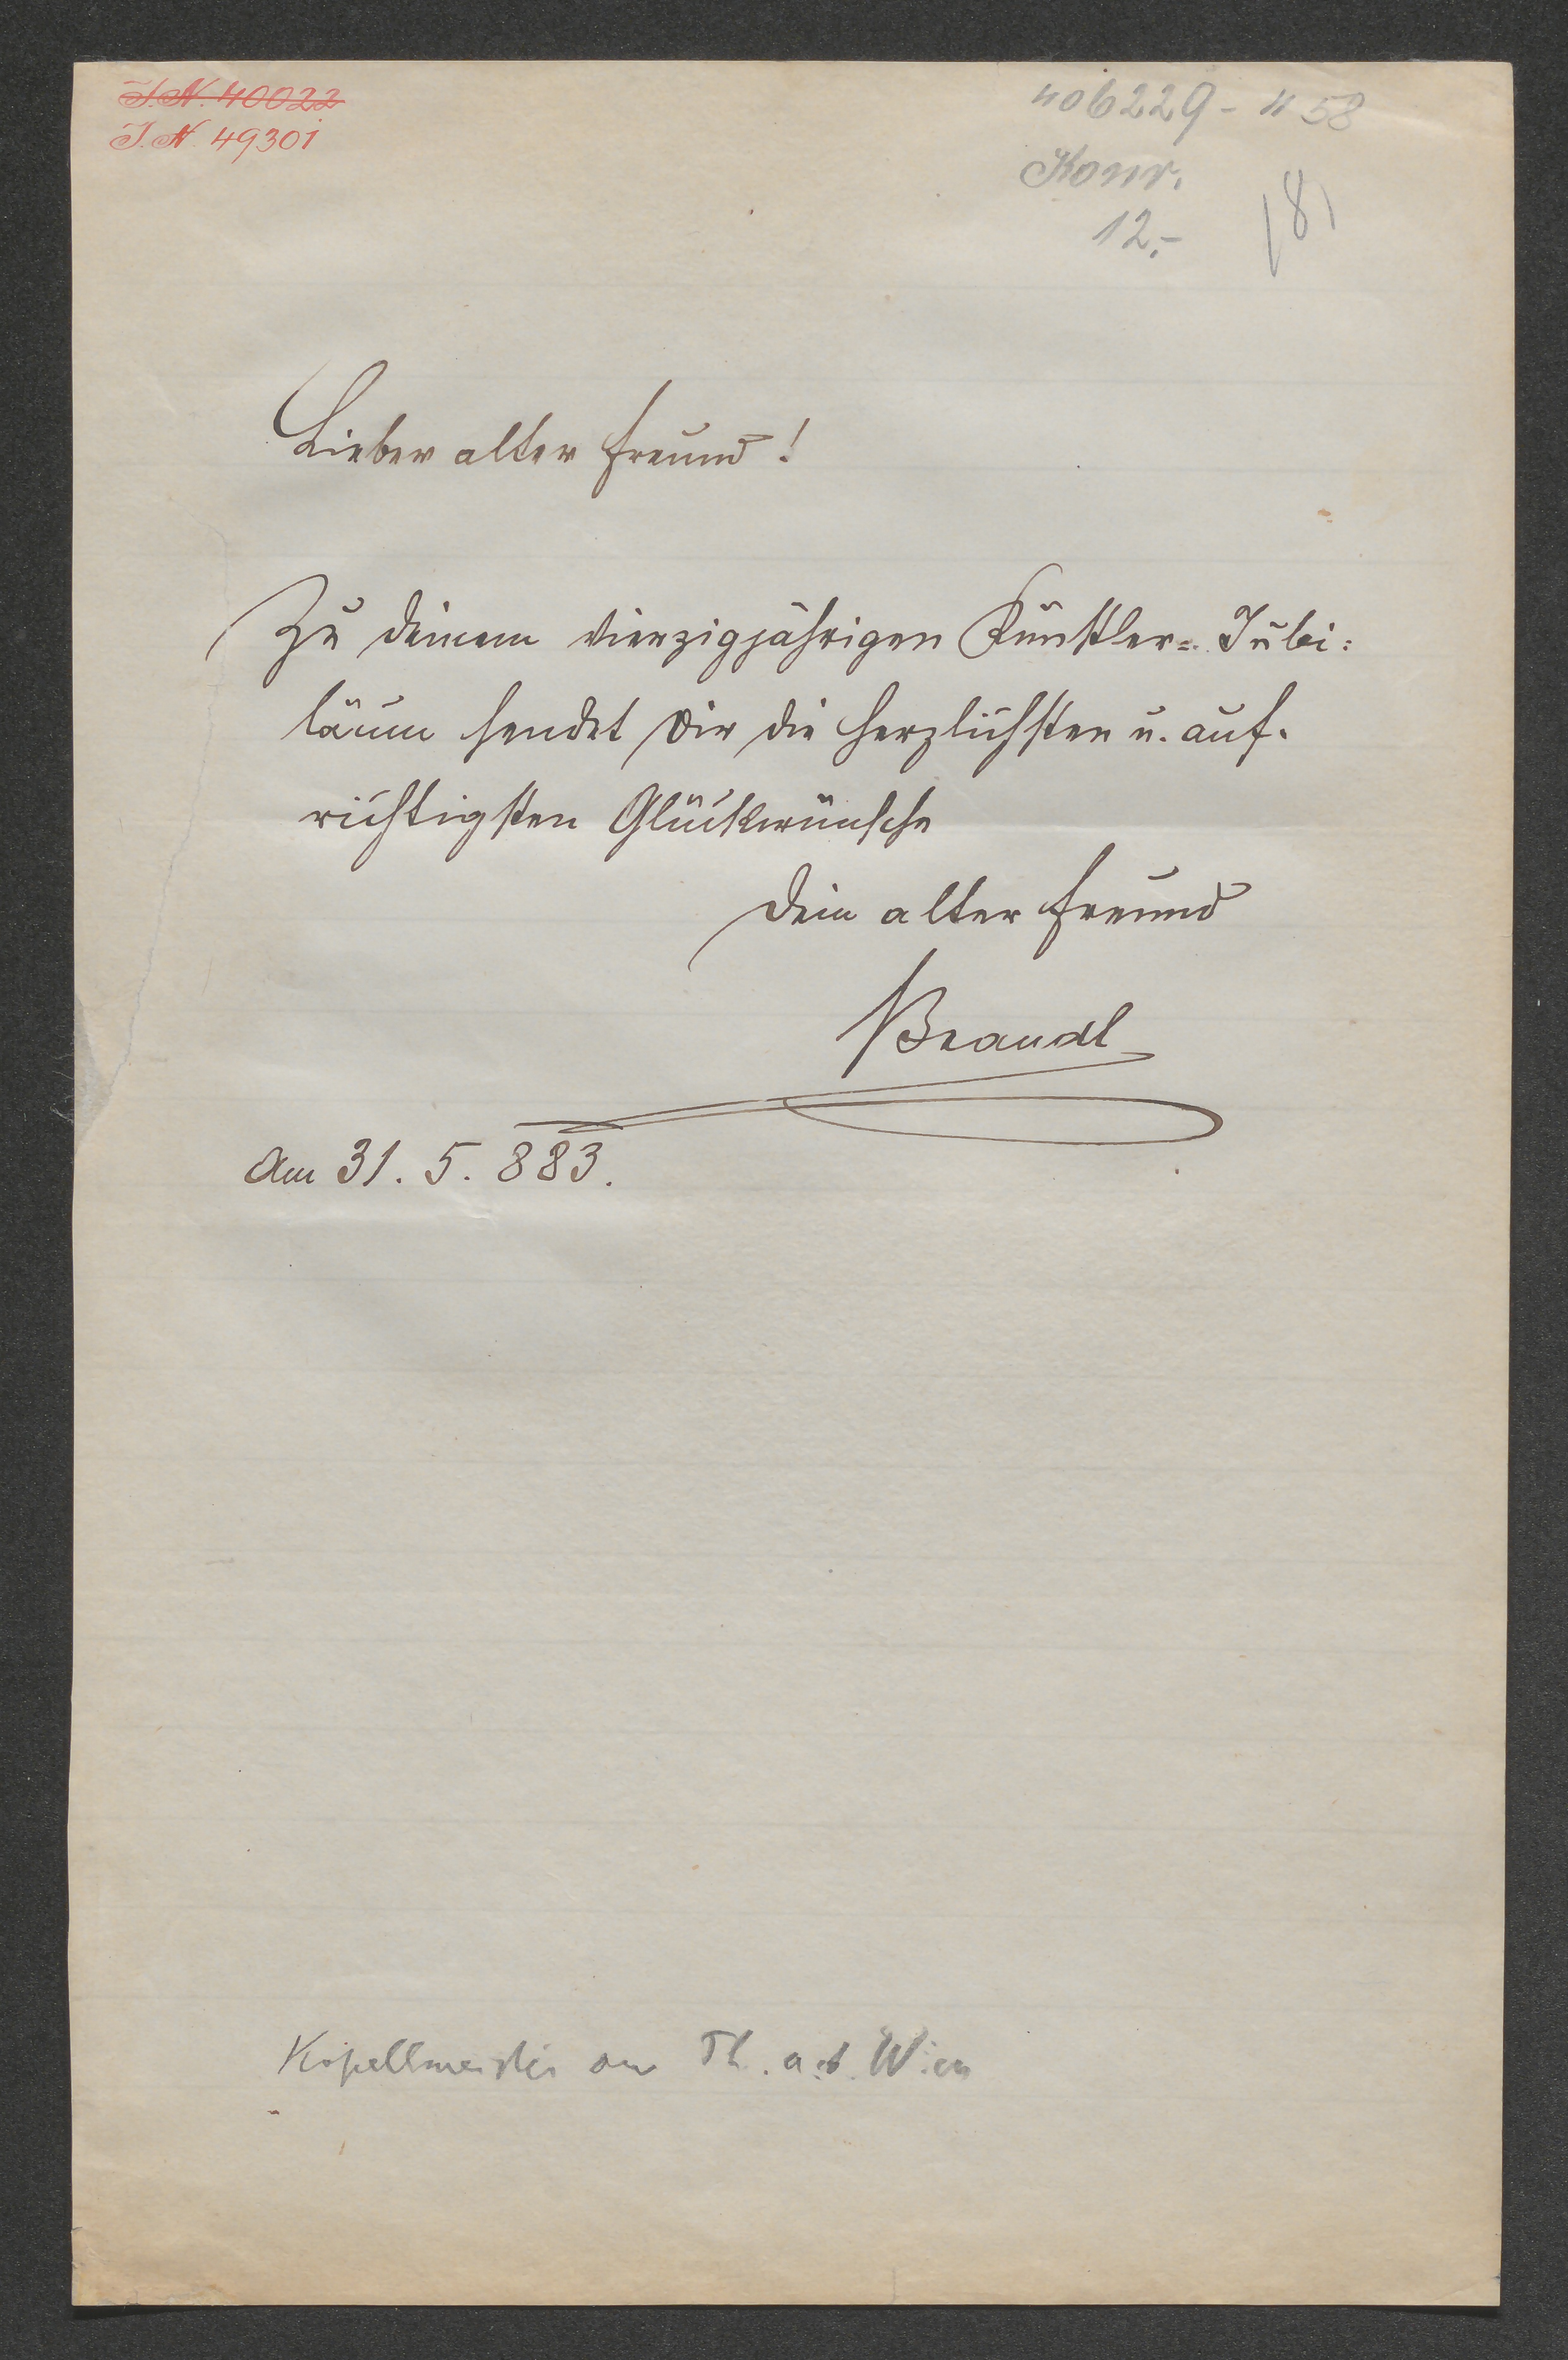 I.N. 40022
I.N. 49301
406229 - 458
Konv.
12.-
181
Lieber alter Freund!
Zu deinem vierzigjährigen Künstler= Jubi:
läum sendet Dir die herzlichsten u. auf-
richtigsten Glückwünsche
Dein alter Freund
Brandl
Am 31. 5. 883.
Kapellmeister am Th. a. d. Wien